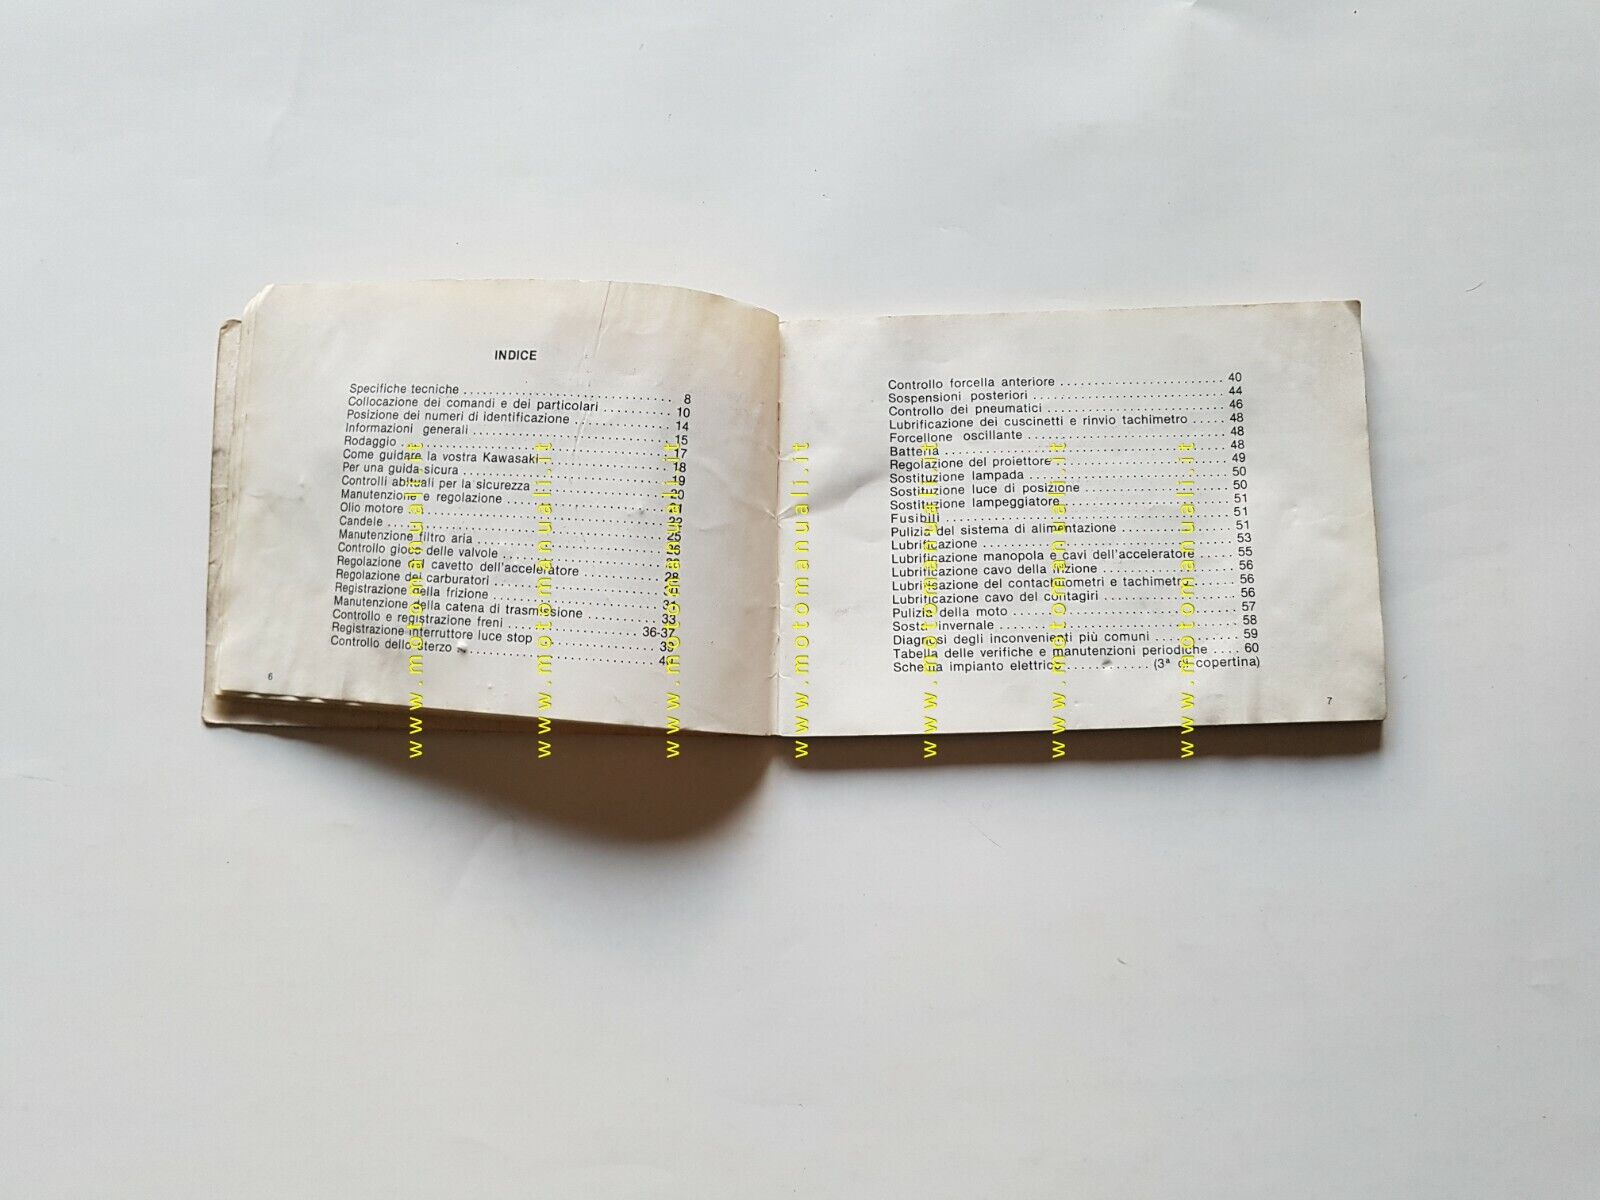 INDICE
Specifiche tecniche . . . . . . . . . . . . . . . . . . . . 8
Collocazione dei comandi e dei particolari . . . . . . . . . . 10
Posizione dei numeri di identificazione . . . . . . . . . . . . 14
Informazioni generali . . . . . . . . . . . . . . . . . . . . 15
Rodaggio . . . . . . . . . . . . . . . . . . . . 17
Come guidare la vostra Kawasaki . . . . . . . . . . . . . . 18
Per una guida sicura . . . . . . . . . . . . . . . . . . . . 19
Controlli abituali per la sicurezza . . . . . . . . . . . . . . 20
Manutenzione e regolazione . . . . . . . . . . . . . . . .
Olio motore . . . . . . . . . . . . . . . . . . . .
Candele . . . . . . . . . . . . . . . . . . . . 25
Manutenzione filtro aria . . . . . . . . . . . . . . . . . . . .
Controllo gioco delle valvole . . . . . . . . . . . . . . . .
Regolazione del cavetto dell'acceleratore . . . . . . . . . . 28
Regolazione dei carburatori . . . . . . . . . . . . . . . .
Registrazione della frizione . . . . . . . . . . . . . . . .
Manutenzione della catena di trasmissione . . . . . . . . . . 33
Controllo e registrazione freni . . . . . . . . . . . . . . 36-37
Registrazione interruttore luce stop . . . . . . . . . . . .
Controllo dello sterzo . . . . . . . . . . . . . . . . . . . .
6
Controllo forcella anteriore . . . . . . . . . . . . . . . . . . . . 40
Sospensioni posteriori . . . . . . . . . . . . . . . . . . . . 44
Controllo dei pneumatici . . . . . . . . . . . . . . . . . . . . 46
Lubrificazione dei cuscinetti e rinvio tachimetro . . . . . 48
Forcellone oscillante . . . . . . . . . . . . . . . . . . . . 48
Batteria . . . . . . . . . . . . . . . . . . . . 48
Regolazione del proiettore . . . . . . . . . . . . . . . . 49
Sostituzione lampada . . . . . . . . . . . . . . . . . . . . 50
Sostituzione luce di posizione . . . . . . . . . . . . . . . . 50
Sostituzione lampeggiatore . . . . . . . . . . . . . . . . 51
Fusibili . . . . . . . . . . . . . . . . . . . . 51
Pulizia del sistema di alimentazione . . . . . . . . . . . . 51
Lubrificazione . . . . . . . . . . . . . . . . . . . . 53
Lubrificazione manopola e cavi dell'acceleratore . . . . 55
Lubrificazione cavo della frizione . . . . . . . . . . . . 56
Lubrificazione del contachilometri e tachimetro . . . . . 56
Lubrificazione cavo del contagiri . . . . . . . . . . . . 56
Pulizia della moto . . . . . . . . . . . . . . . . . . . . 57
Sosta invernale . . . . . . . . . . . . . . . . . . . . 58
Diagnosi degli inconvenienti più comuni . . . . . . . . . . 59
Tabella delle verifiche e manutenzioni periodiche . . . . 60
Schema impianto elettrico . . . . . . . . . . . . (3ª di copertina)
7
www.motomanuali.it
www.motomanuali.it
www.motomanuali.it
www.motomanuali.it
www.motomanuali.it
www.motomanuali.it
www.motomanuali.it